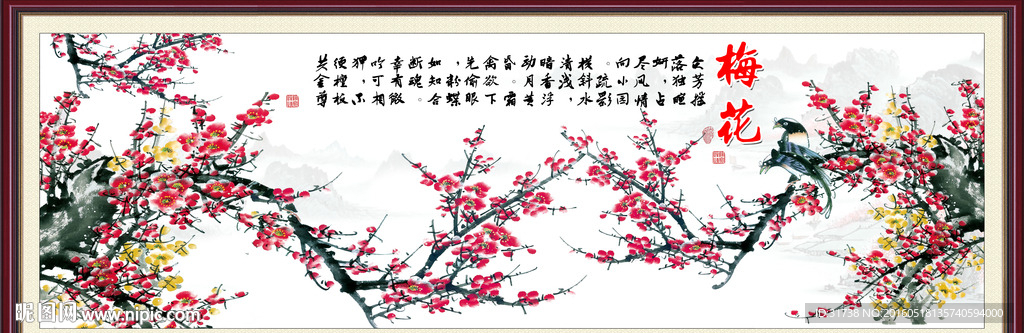 梅花
众芳摇
落独暄
妍，占
尽风情
向小园
。疏影
横斜水
清浅，
暗香浮
动月黄
昏。霜
禽欲下
先偷眼
，粉蝶
如知合
断魂。
幸有微
吟可相
狎，不
须檀板
共金尊
昵图网 www.nipic.com
ID:31738 NO:20160518135740594000